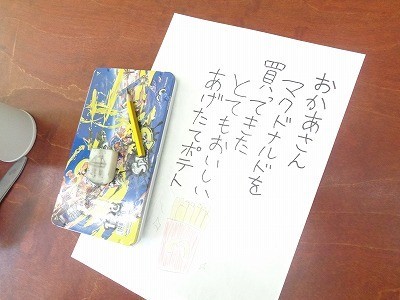 おかあさん
マクドナルドを
買ってきた
とてもおいしい
あげたてポテト